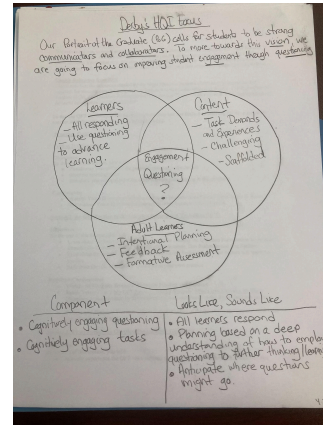 Derby's HQI Focus
Our Portrait of the Graduate (BG) calls for students to be strong
communicators and collaborators. To move towards this vision, we
are going to focus on improving student engagement though questioning
Learners
- All responding
- Use questioning
to advance
learning.
Content
- Task Demands
and Experiences
- Challenging
- Scaffolded
Engagement
Questioning
?
Adult Learners
- Intentional Planning
- Feedback
- Formative Assessment
Component
• Cognitively engaging questioning
• Cognitively engaging tasks
Looks Like, Sounds Like
• All learners respond
• Planning based on a deep
understanding of how to employ
questioning to further thinking/
• Anticipate where questions
might go.